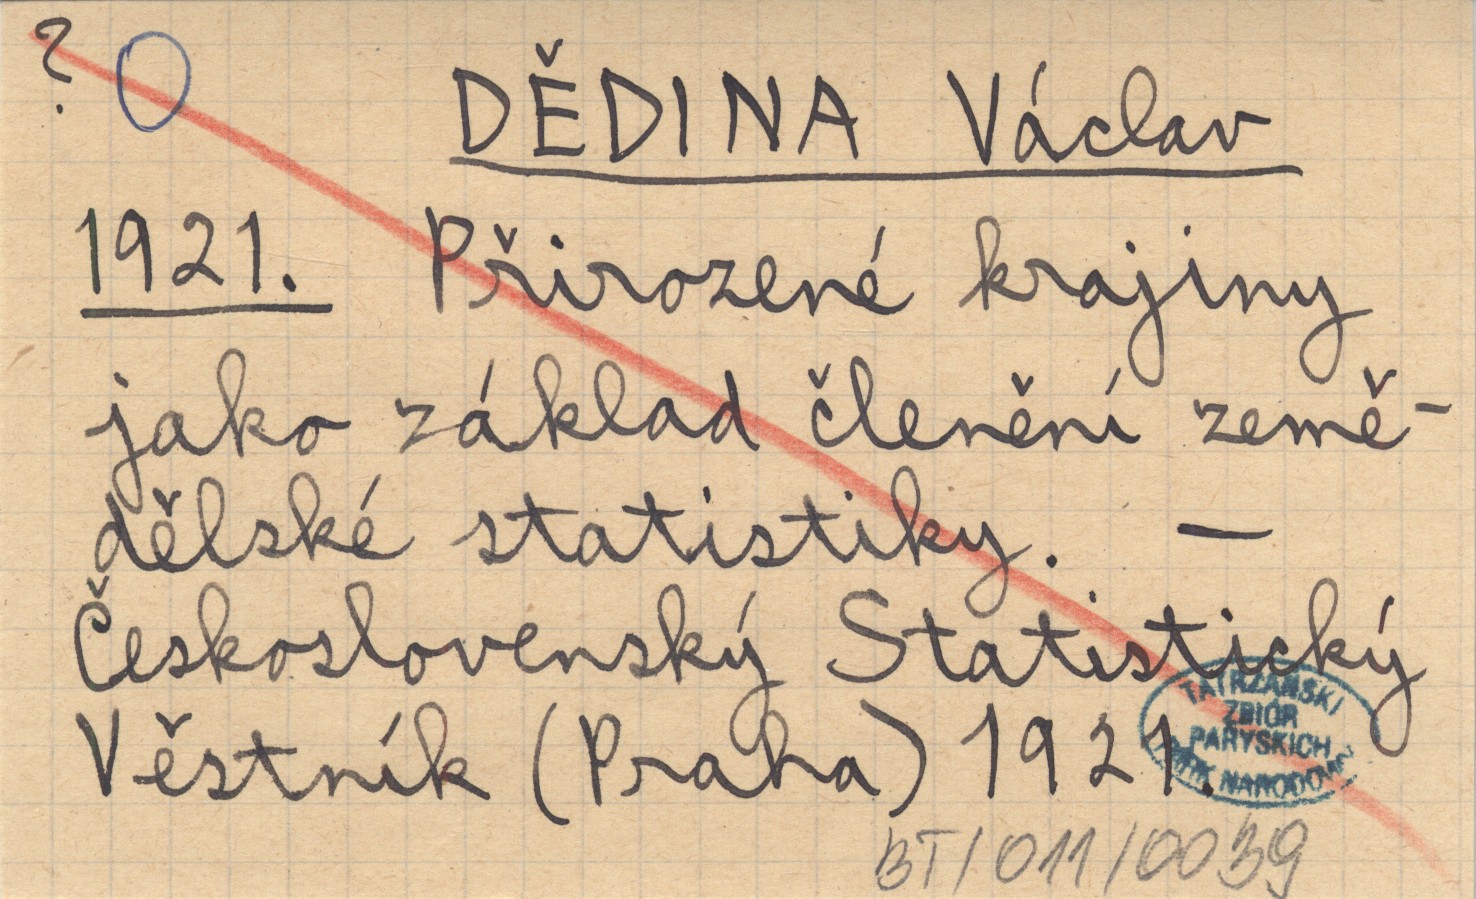 ?
DĚDINA Václav
1921. Přirozené krajiny
jako základ členění země-
dělské statistiky. —
Československý Statistický
Věstník (Praha) 1921.
TATRZAŃSKI
ZBIÓR
PARYSKICH
PARK NARODOWY
BT/011/0039